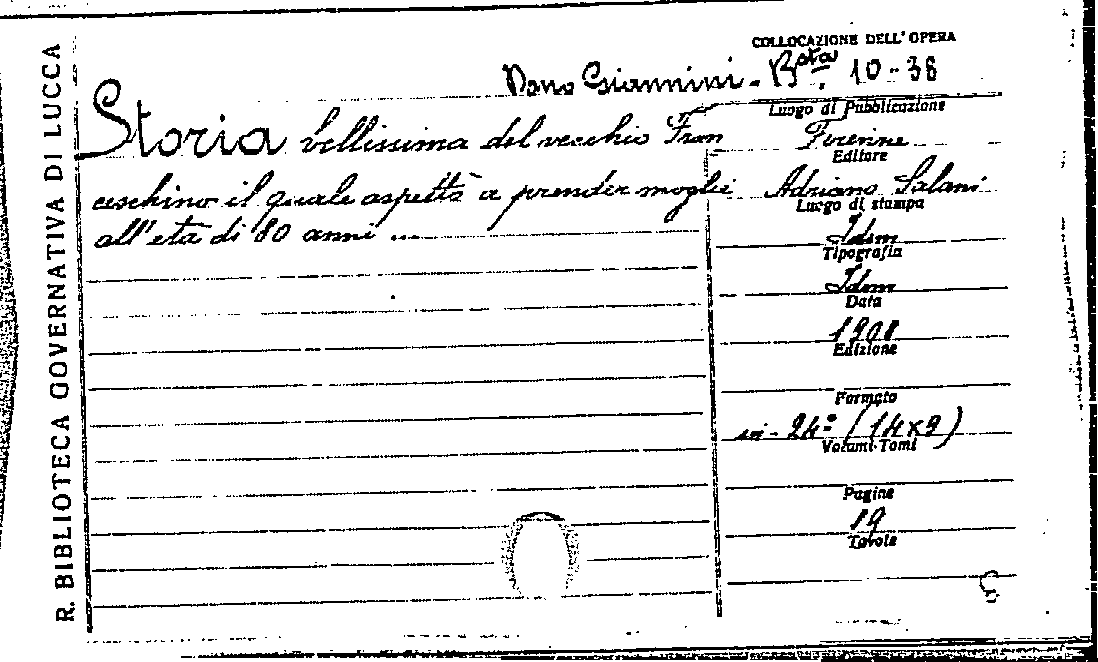 R. BIBLIOTECA GOVERNATIVA DI LUCCA
COLLOCAZIONE DELL'OPERA
Dono Giannini - Bsta 10-38
Storia bellissima del vecchio Fran
ceschino il quale aspettà a prender moglie
all'età di 80 anni ...
Luogo di Pubblicazione
Firenze
Editore
Adriano Salani
Luogo di stampa
Idem
Tipografia
Idem
Data
1908
Edizione
Formato
in-24º (14x9)
Volumi-Tomi
Pagine
19
Tavole